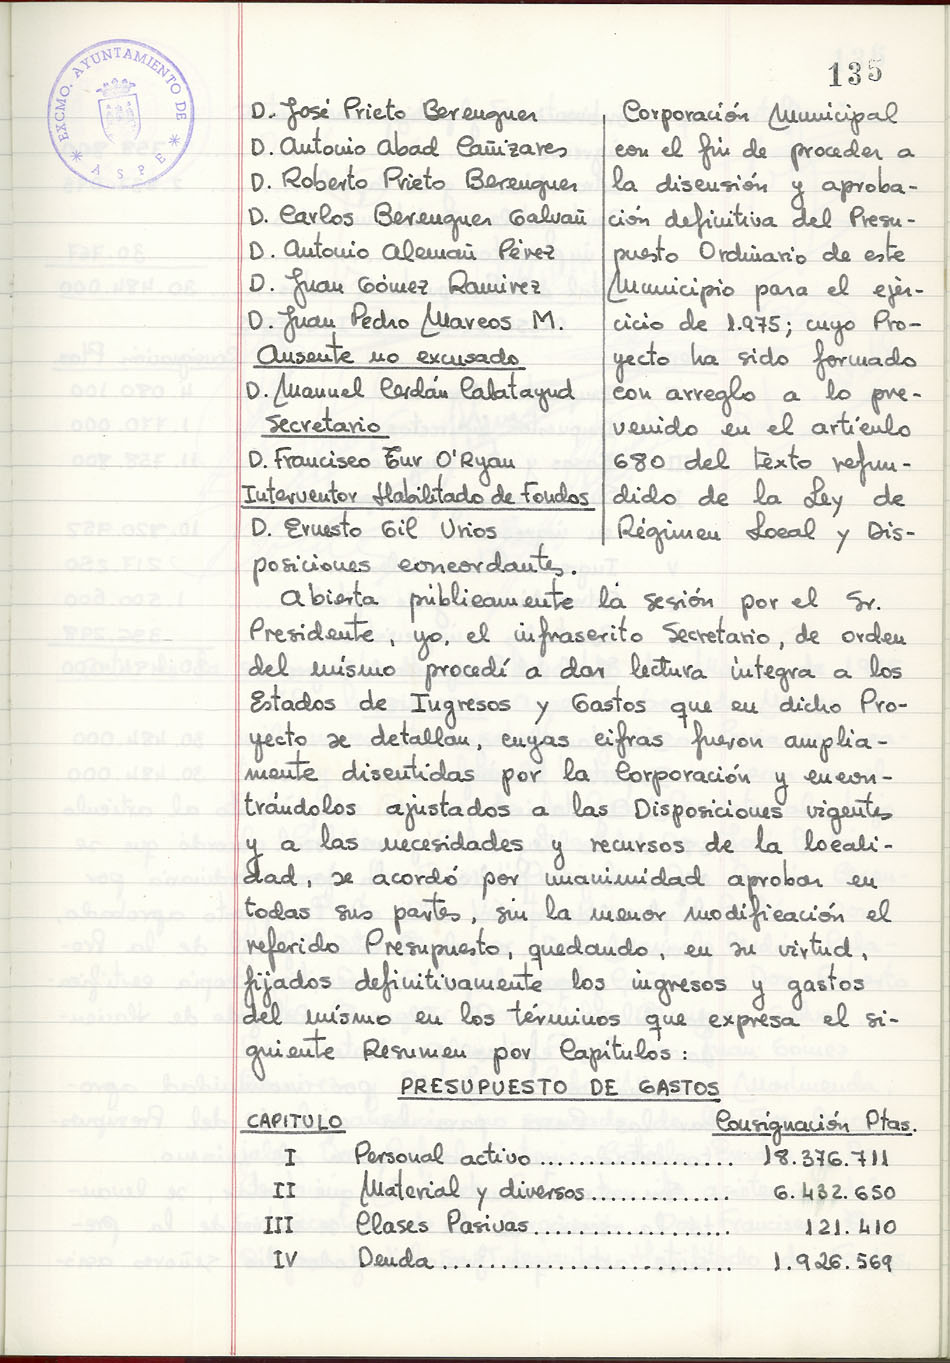 135
EXCMO. AYUNTAMIENTO DE
* ASPE *
D. José Prieto Berenguer
D. Antonio Abad Cañizares
D. Roberto Prieto Berenguer
D. Carlos Berenguer Galvañ
D. Antonio Alemañ Pérez
D. Juan Gómez Ramirez
D. Juan Pedro Marcos M.
Ausente no excusado
D. Manuel Cerdán Calatayud
Secretario
D. Francisco Tur O'Ryan
Interventor Habilitado de Fondos
D. Ernesto Gil Urios
Corporación Municipal
con el fin de proceder a
la discusión y aproba-
ción definitiva del Presu-
puesto Ordinario de este
Municipio para el ejer-
cicio de 1.975; cuyo Pro-
yecto ha sido formado
con arreglo a lo pre-
venido en el artículo
680 del texto refun-
dido de la Ley de
Régimen Local y Dis-
posiciones concordantes.
Abierta públicamente la sesión por el Sr.
Presidente, yo, el infrascrito Secretario, de orden
del mismo procedí a dar lectura integra a los
Estados de Ingresos y Gastos que en dicho Pro-
yecto se detallan, cuyas cifras fueron amplia-
mente discutidas por la Corporación y encon-
trándolos ajustados a las Disposiciones vigentes
y a las necesidades y recursos de la locali-
dad, se acordó por unanimidad aprobar en
todas sus partes, sin la menor modificación el
referido Presupuesto, quedando, en su virtud,
fijados definitivamente los ingresos y gastos
del mismo en los términos que expresa el si-
guiente Resumen por Capítulos:
PRESUPUESTO DE GASTOS
CAPITULO Consignación Ptas.
I Personal activo.................. 18.376.711
II Material y diversos............. 6.432.650
III Clases Pasivas................... 121.410
IV Deuda........................... 1.926.569